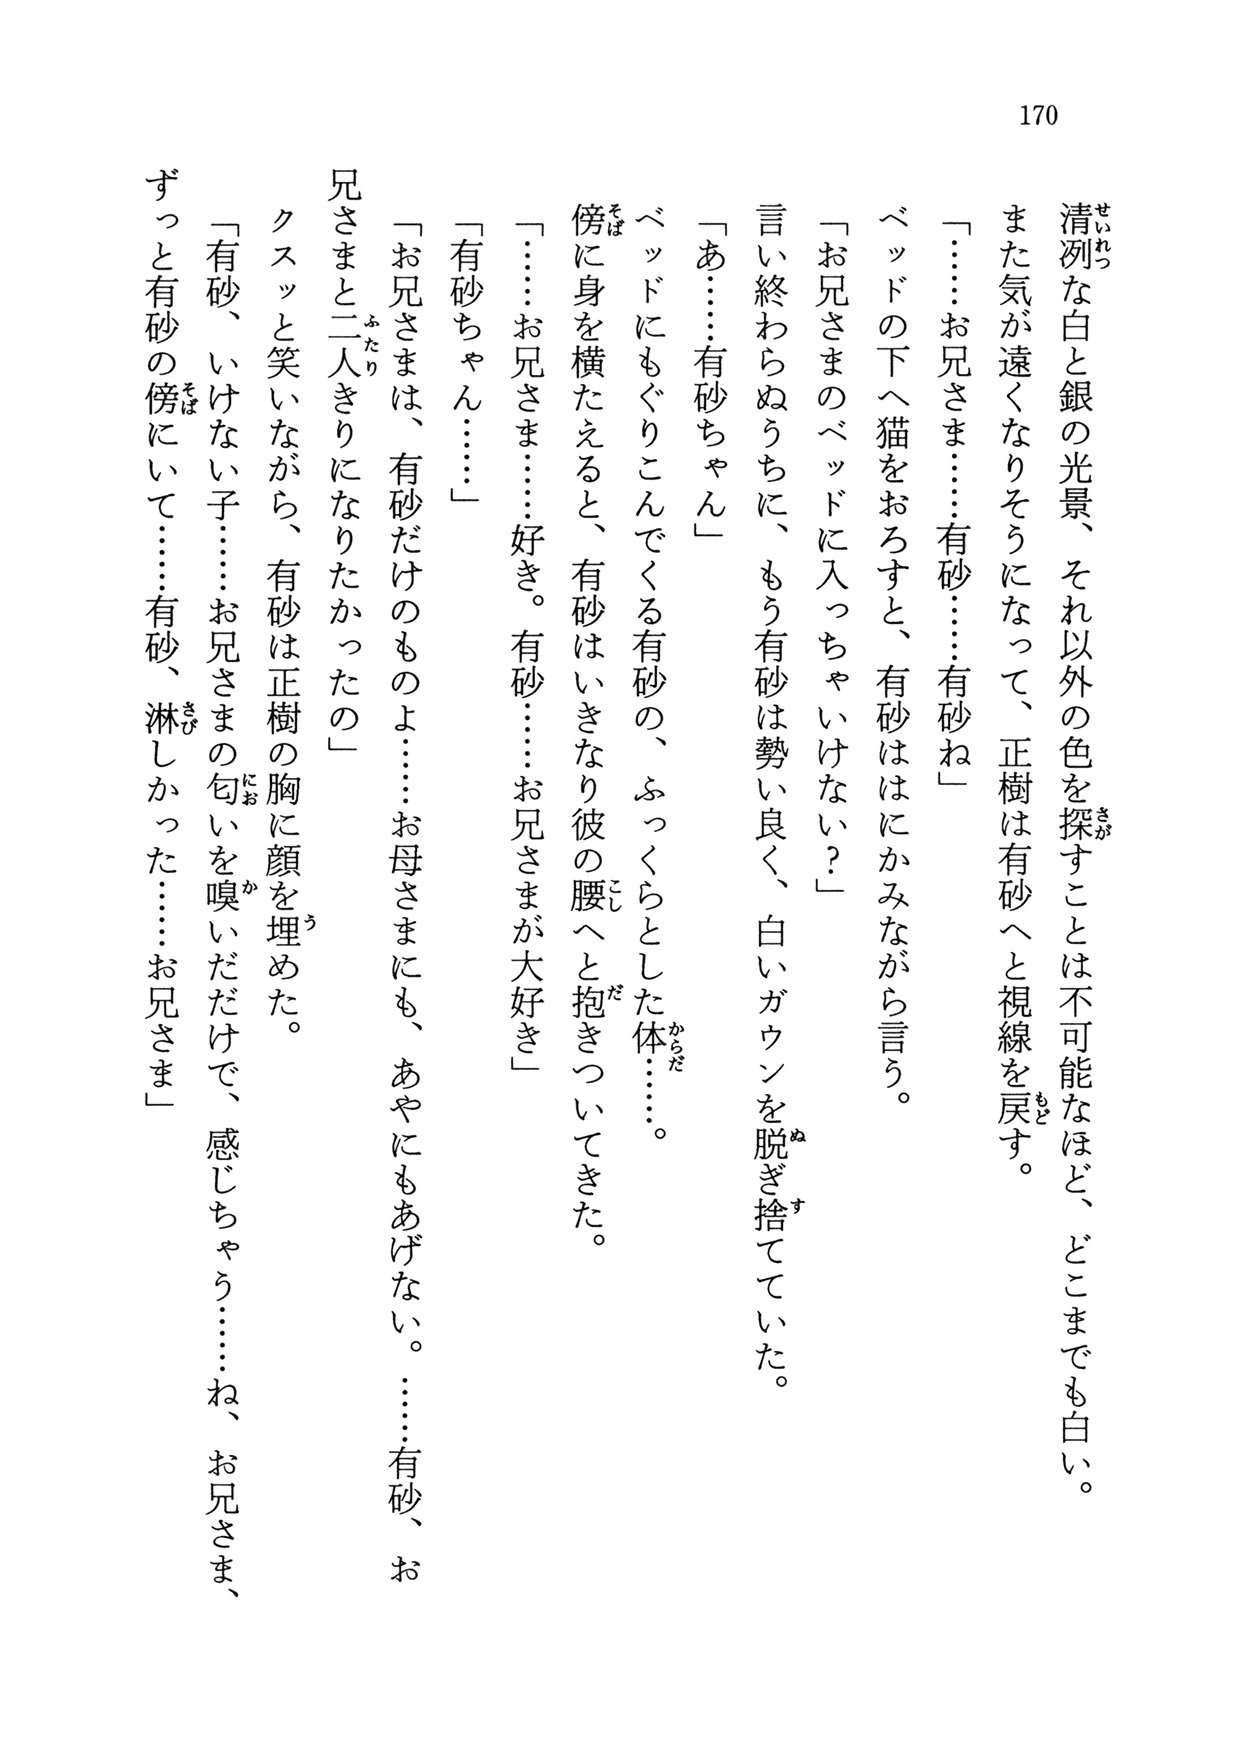 170
清冽な白と銀の光景、それ以外の色を探すことは不可能なほど、どこまでも白い。
また気が遠くなりそうになって、正樹は有砂へと視線を戻す。
「……お兄さま……有砂……有砂ね」
ベッドの下へ猫をおろすと、有砂ははにかみながら言う。
「お兄さまのベッドに入っちゃいけない？」
言い終わらぬうちに、もう有砂は勢い良く、白いガウンを脱ぎ捨てていた。
「あ……有砂ちゃん」
ベッドにもぐりこんでくる有砂の、ふっくらとした体……。
傍に身を横たえると、有砂はいきなり彼の腰へと抱きついてきた。
「……お兄さま……好き。有砂……お兄さまが大好き」
「有砂ちゃん……」
「お兄さまは、有砂だけのものよ……お母さまにも、あやにもあげない。……有砂、お
兄さまと二人きりになりたかったの」
クスッと笑いながら、有砂は正樹の胸に顔を埋めた。
「有砂、いけない子……お兄さまの匂いを嗅いだだけで、感じちゃう……ね、お兄さま、
ずっと有砂の傍にいて……有砂、淋しかった……お兄さま」